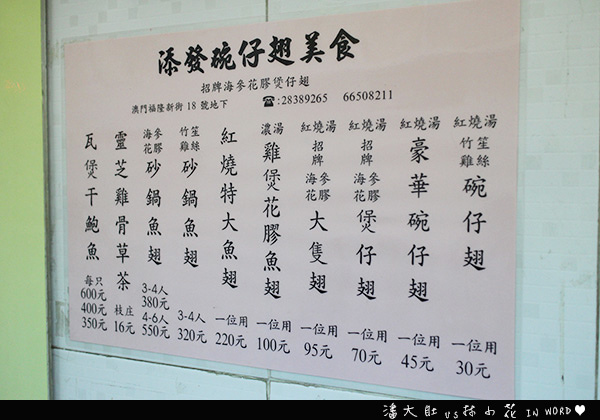 添發碗仔翅美食
招牌海參花膠煲仔翅
澳門福隆新街 18 號地下 ☎:28389265 66508211
紅燒湯 竹笙雞絲 碗仔翅 一位用 30元
紅燒湯 豪華碗仔翅 一位用 45元
紅燒湯 招牌 海參花膠 煲仔翅 一位用 70元
紅燒湯 招牌 海參花膠 大隻翅 一位用 95元
濃湯 雞煲花膠魚翅 一位用 100元
紅燒特大魚翅 一位用 220元
竹笙雞絲 砂鍋魚翅 3-4人 320元
海參花膠 砂鍋魚翅 3-4人 380元 4-6人 550元
靈芝雞骨草茶 枝庄 16元
瓦煲干鮑魚 每只 600元 400元 350元
潘大肚 vs 林小花 IN WORD♥